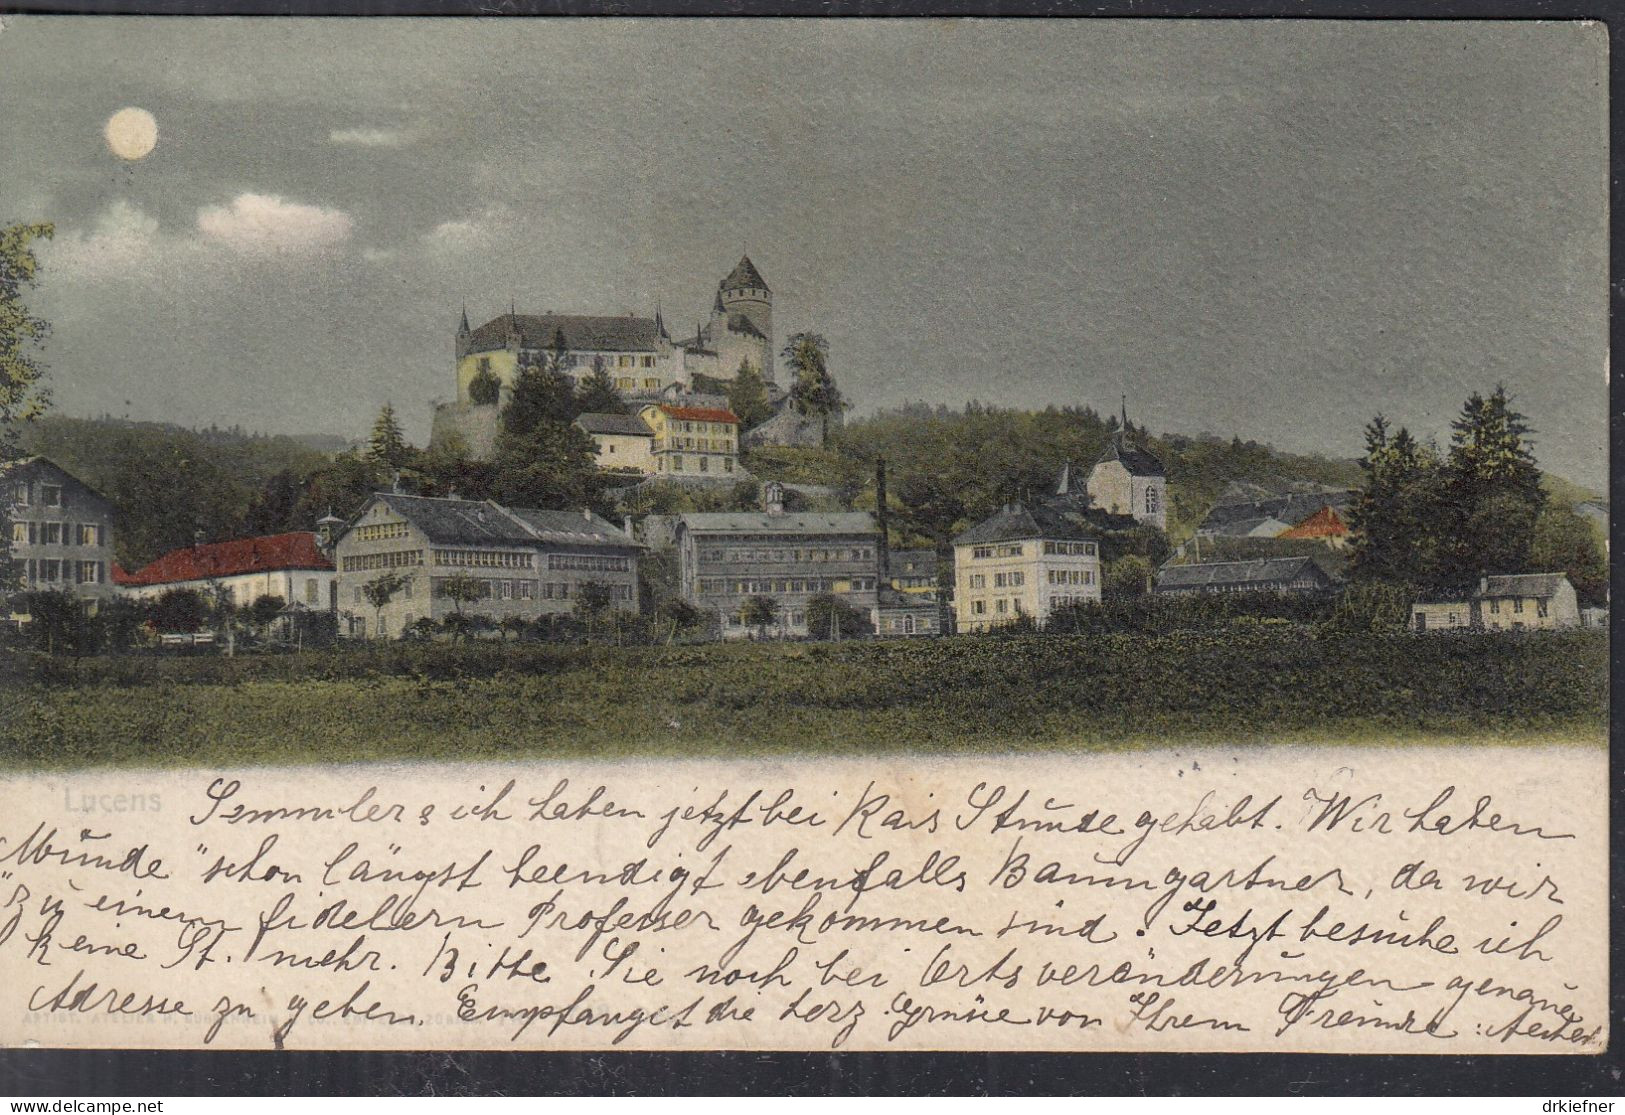 Lucens
Semmler & ich haben jetzt bei Kais Stunde gehabt. Wir haben
„Stunde" schon längst beendigt ebenfalls Baumgartner, da wir
zu einem fidelern Professer gekommen sind. Jetzt besuche ich
keine St. mehr. Bitte Sie noch bei Ortsveränderungen genaue
Adresse zu geben. Empfanget die herz. Grüsse von Ihrem Freunde:
delcampe.net
drkiefner